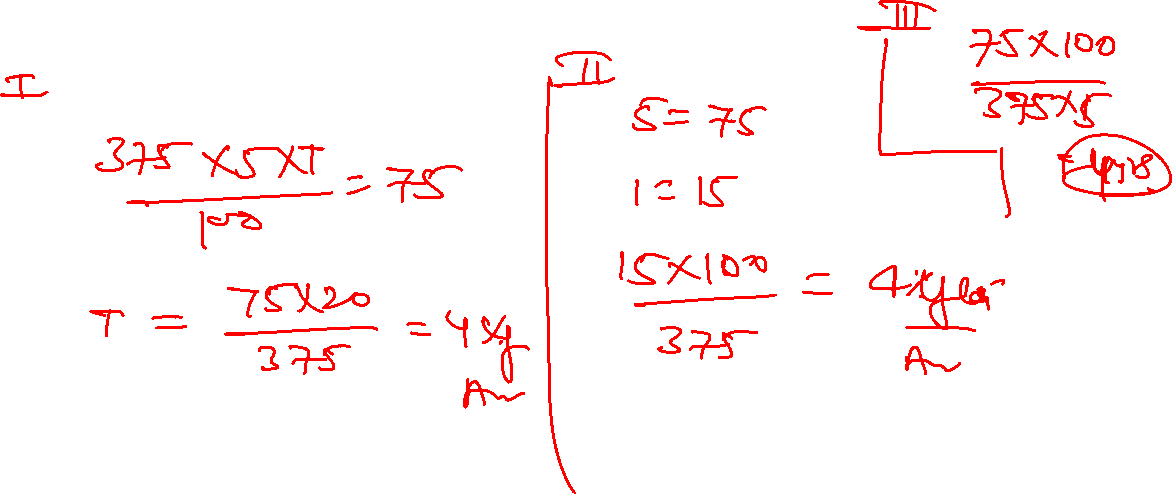 I
375 × 5 × T / 100 = 75
T = 75 × 20 / 375 = 4
II
5 = 75
1 = 15
15 × 100 / 375 = 4
III
75 × 100 / 375 × 5
= 4 yrs